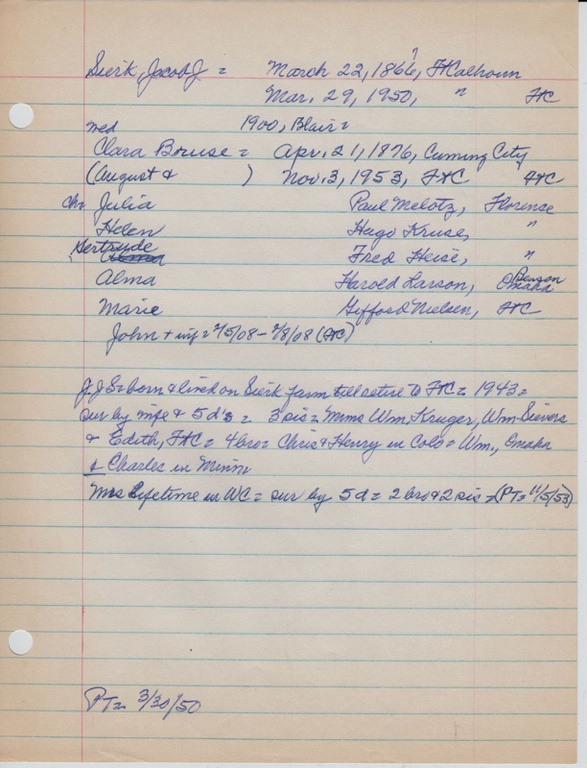 ?
Sierk, Jacob J = March 22, 1866, Ft Calhoun
Mar. 29, 1950, " FtC
med 1900, Blair =
Clara Bruse = Apr. 21, 1876, Cuming City
(August & ) Nov. 3, 1953, FtC FtC
ch = Julia Paul Melotz, Florence
Helen Hugo Kruse, "
Gertrude Fred Heise, "
Alma Harold Larson, Benson Omaha
Marie Gifford Nielsen, FtC
John + inf = 2/5/08 - 2/8/08 (FtC)
J.J.S = born & lived on Sierk farm till retire to FtC = 1943 =
sur by wife & 5 d's = 3 sis = Mmes Wm. Kruger, Wm Sievers
& Edith, FtC = 4 bro = Chris & Henry in Colo = Wm., Omaha
& Charles in Minn
Mrs lifetime in WC = sur by 5 d = 2 bro & 2 sis = (PT = 11/5/53)
PT = 3/30/50